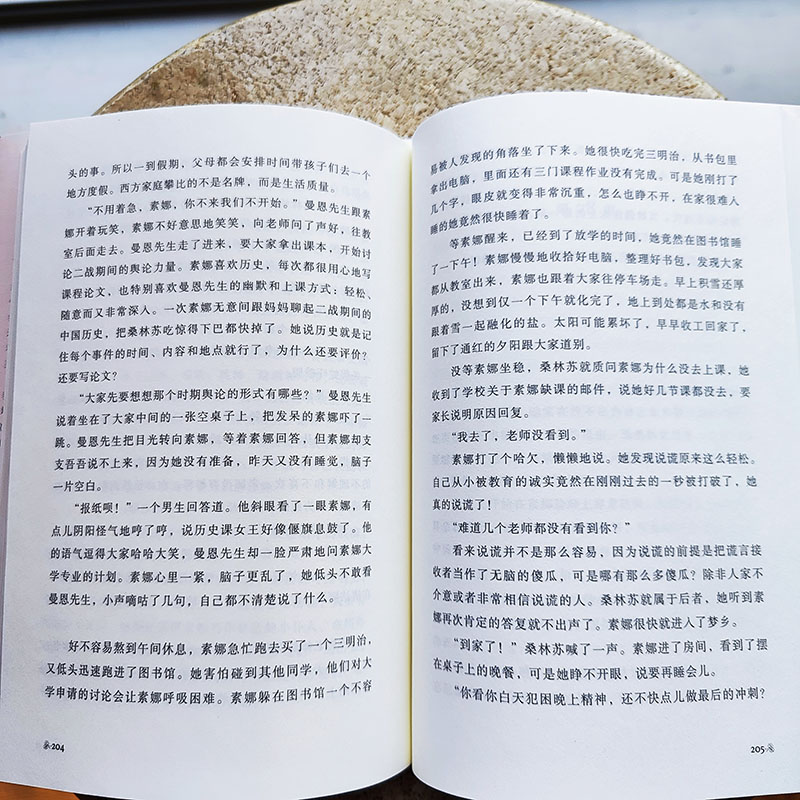 头的事。所以一到假期，父母都会安排时间带孩子们去一个
地方度假。西方家庭攀比的不是名牌，而是生活质量。
“不用着急，素娜，你不来我们不开始。”曼恩先生跟素
娜开着玩笑，素娜不好意思地笑笑，向老师问了声好，往教
室后面走去。曼恩先生走了进来，要大家拿出课本，开始讨
论二战期间的舆论力量。素娜喜欢历史，每次都很用心地写
课程论文，也特别喜欢曼恩先生的幽默和上课方式：轻松、
随意而又非常深入。一次素娜无意间跟妈妈聊起二战期间的
中国历史，把桑林苏吃惊得下巴都快掉了。她说历史就是记
住每个事件的时间、内容和地点就行了，为什么还要评价？
还要写论文？
“大家先要想想那个时期舆论的形式有哪些？”曼恩先生
说着坐在了大家中间的一张空桌子上，把发呆的素娜吓了一
跳。曼恩先生把目光转向素娜，等着素娜回答，但素娜却支
支吾吾说不上来，因为她没有准备，昨天又没有睡觉，脑子
一片空白。
“报纸呗！”一个男生回答道。他斜眼看了一眼素娜，有
点儿阴阳怪气地哼了哼，说历史课女王好像偃旗息鼓了。他
的语气逗得大家哈哈大笑，曼恩先生却一脸严肃地问素娜大
学专业的计划。素娜心里一紧，脑子更乱了，她低头不敢看
曼恩先生，小声嘀咕了几句，自己都不清楚说了什么。
好不容易熬到午间休息，素娜急忙跑去买了一个三明治，
又低头迅速跑进了图书馆。她害怕碰到其他同学，他们对大
学申请的讨论会让素娜呼吸困难。素娜躲在图书馆一个不容
204
易被人发现的角落坐了下来。她很快吃完三明治，从书包里
拿出电脑，里面还有三门课程作业没有完成。可是她刚打了
几个字，眼皮就变得非常沉重，怎么也睁不开，在家很难入
睡的她竟然很快睡着了。
等素娜醒来，已经到了放学的时间，她竟然在图书馆睡
了一下午！素娜慢慢地收拾好电脑，整理好书包，发现大家
都从教室出来，素娜也跟着大家往停车场走。早上积雪还厚
厚的，没想到仅一个下午就化完了，地上到处都是水和没有
跟着雪一起融化的盐。太阳可能累坏了，早早收工回家了，
留下了通红的夕阳跟大家道别。
没等素娜坐稳，桑林苏就质问素娜为什么没去上课，她
收到了学校关于素娜缺课的邮件，说她好几节课都没去，要
家长说明原因回复。
“我去了，老师没看到。”
素娜打了个哈欠，懒懒地说。她发现说谎原来这么轻松。
自己从小被教育的诚实竟然在刚刚过去的一秒被打破了，她
真的说谎了！
“难道几个老师都没有看到你？”
看来说谎并不是那么容易，因为说谎的前提是把谎言接
收者当作了无脑的傻瓜，可是哪有那么多傻瓜？除非人家不
介意或者非常相信说谎的人。桑林苏就属于后者，她听到素
娜再次肯定的答复就不出声了。素娜很快就进入了梦乡。
“到家了！”桑林苏喊了一声。素娜进了房间，看到了摆
在桌子上的晚餐，可是她睁不开眼，说要再睡会儿。
“你看你白天犯困晚上精神，还不快点儿做最后的冲刺？
205